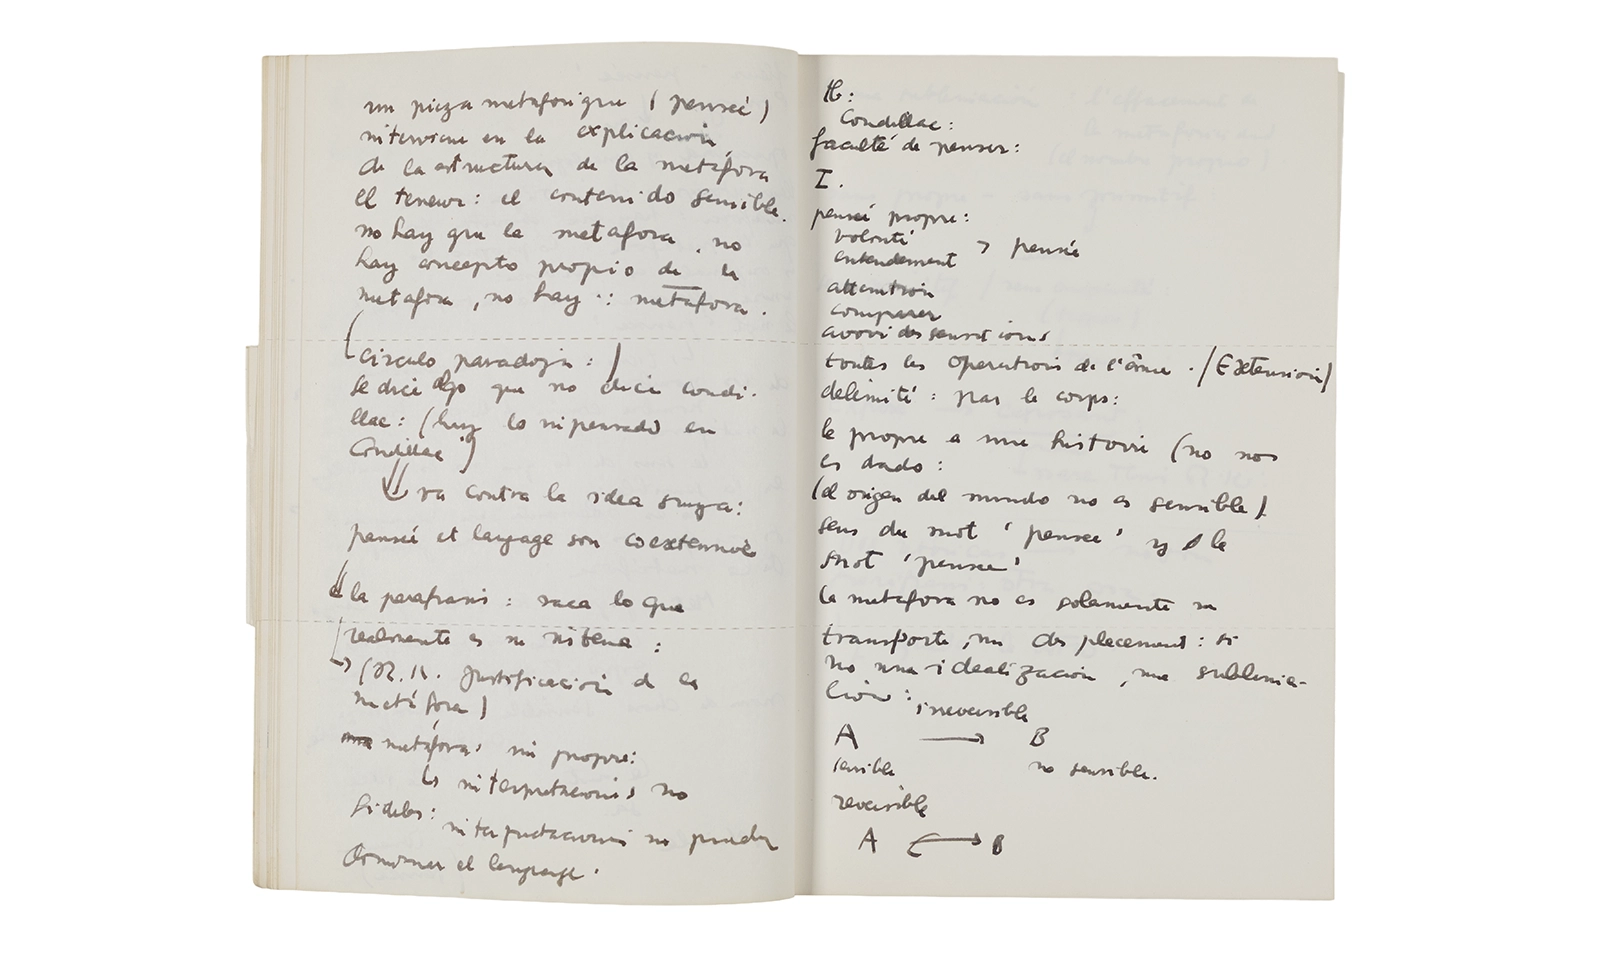 un pieza metaforique (pensée)
interviene en la explicación
de la estructura de la metáfora
el teneur: el contenido sensible.
no hay que la metafora, no
hay concepto propio de la
metafora, no hay ∴ metafora.
(circulo paradoja:)
se dice algo que no dice Condi-
llac: (hay lo impensado en
Condillac)
va contra la idea suya:
pensée et langage son coextensive
la parafrasis: saca lo que
realmente es su sistema:
(N.N. justificación de la
metáfora)
metáfora: ni propre:
las interpretaciones no
fideles: interpretaciones no pueden
dominar el langage.
Condillac:
faculté de penser:
I.
pensée propre:
volonté
entendement > pensée
attention
comparer
avoir des sensations
toutes les operations de l'âme. (Extension)
delimité: par le corps:
le propre a une histoire (no nos
es dado:
(el origen del mundo no es sensible)
sens du mot 'pensee' y le
mot 'pensee'
la metafora no es solamente un
transporte, un desplacement: si
no una idealización, una sublima-
ción:
irreversible
A → B
sensible no sensible.
reversible
A ⟷ B